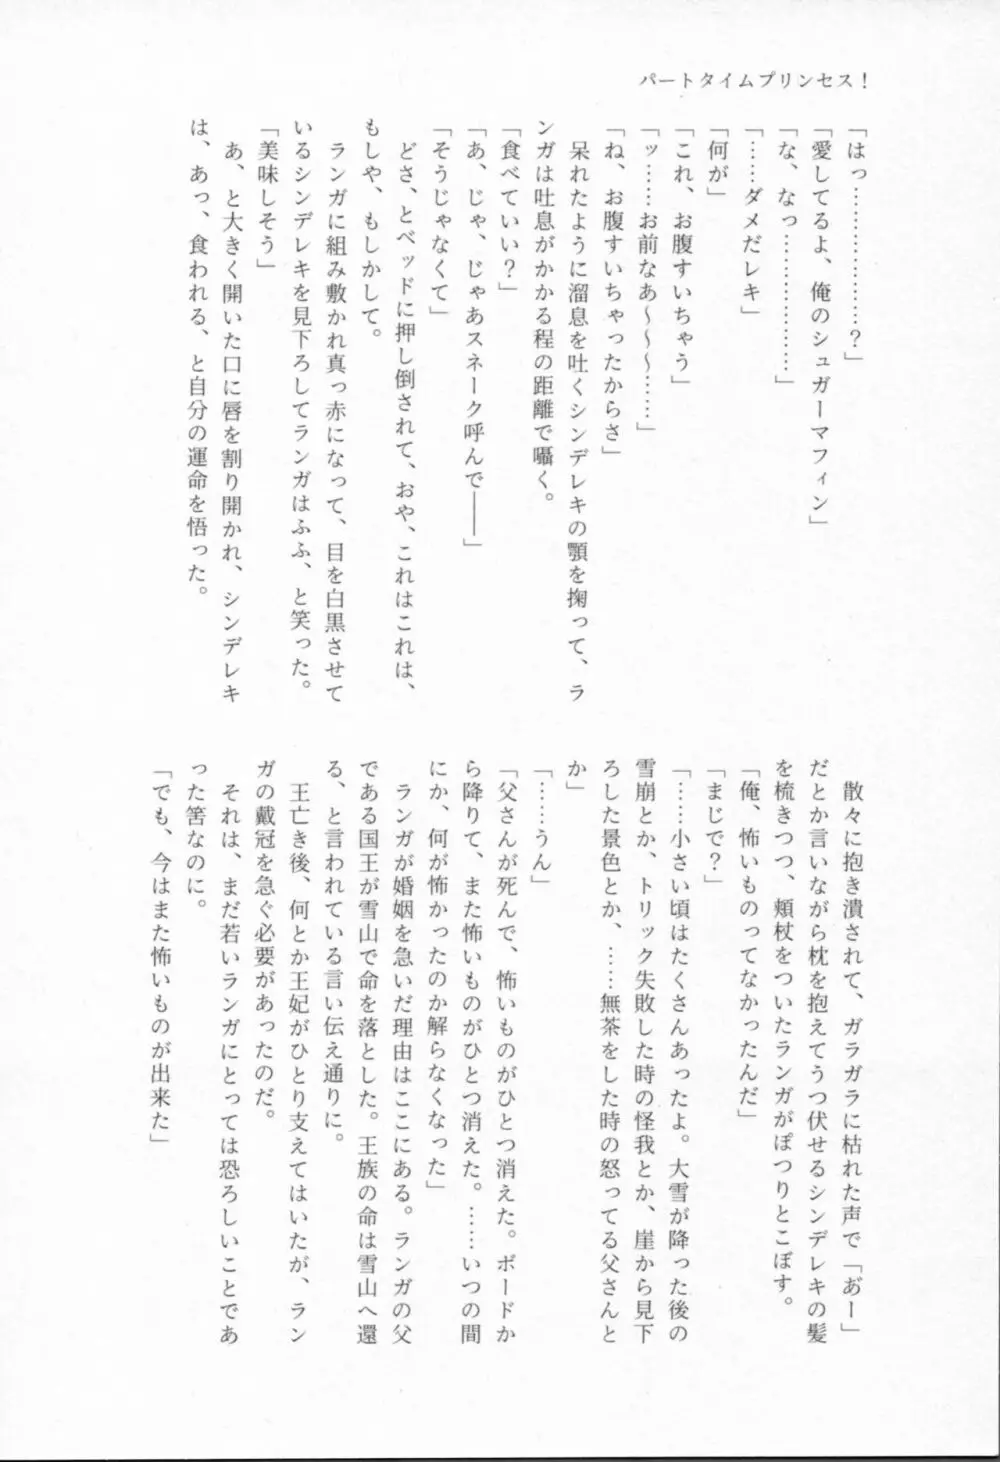 パートタイムプリンセス！
「はっ………………？」
「愛してるよ、俺のシュガーマフィン」
「な、なっ………………」
「……ダメだレキ」
「何が」
「これ、お腹すいちゃう」
「ッ……お前なあ〜〜〜……」
「ね、お腹すいちゃったからさ」
　呆れたように溜息を吐くシンデレキの顎を掬って、ラ
ンガは吐息がかかる程の距離で囁く。
「食べていい？」
「あ、じゃ、じゃあスネーク呼んで――」
「そうじゃなくて」
　どさ、とベッドに押し倒されて、おや、これはこれは、
もしや、もしかして。
　ランガに組み敷かれ真っ赤になって、目を白黒させて
いるシンデレキを見下ろしてランガはふふ、と笑った。
「美味しそう」
　あ、と大きく開いた口に唇を割り開かれ、シンデレキ
は、あっ、食われる、と自分の運命を悟った。
　散々に抱き潰されて、ガラガラに枯れた声で「あ゛ー」
だとか言いながら枕を抱えてうつ伏せるシンデレキの髪
を梳きつつ、頬杖をついたランガがぽつりとこぼす。
「俺、怖いものってなかったんだ」
「まじで？」
「……小さい頃はたくさんあったよ。大雪が降った後の
雪崩とか、トリック失敗した時の怪我とか、崖から見下
ろした景色とか、……無茶をした時の怒ってる父さんと
か」
「……うん」
「父さんが死んで、怖いものがひとつ消えた。ボードか
ら降りて、また怖いものがひとつ消えた。……いつの間
にか、何が怖かったのか解らなくなった」
　ランガが婚姻を急いだ理由はここにある。ランガの父
である国王が雪山で命を落とした。王族の命は雪山へ還
る、と言われている言い伝え通りに。
　王亡き後、何とか王妃がひとり支えてはいたが、ラン
ガの戴冠を急ぐ必要があったのだ。
　それは、まだ若いランガにとっては恐ろしいことであ
った筈なのに。
「でも、今はまた怖いものが出来た」